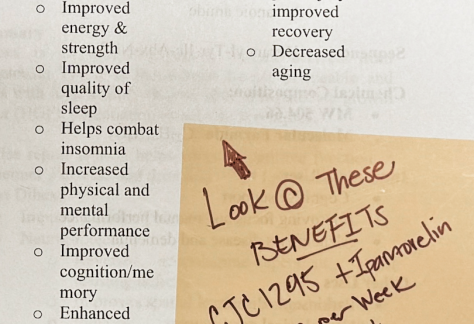 Improved
energy &
strength
Improved
quality of
sleep
Helps combat
insomnia
Increased
physical and
mental
performance
Improved
cognition/me
mory
Enhanced
improved
recovery
Decreased
aging
Look @ These
BENEFITS
CJC1295 + Ipamorelin
per Week